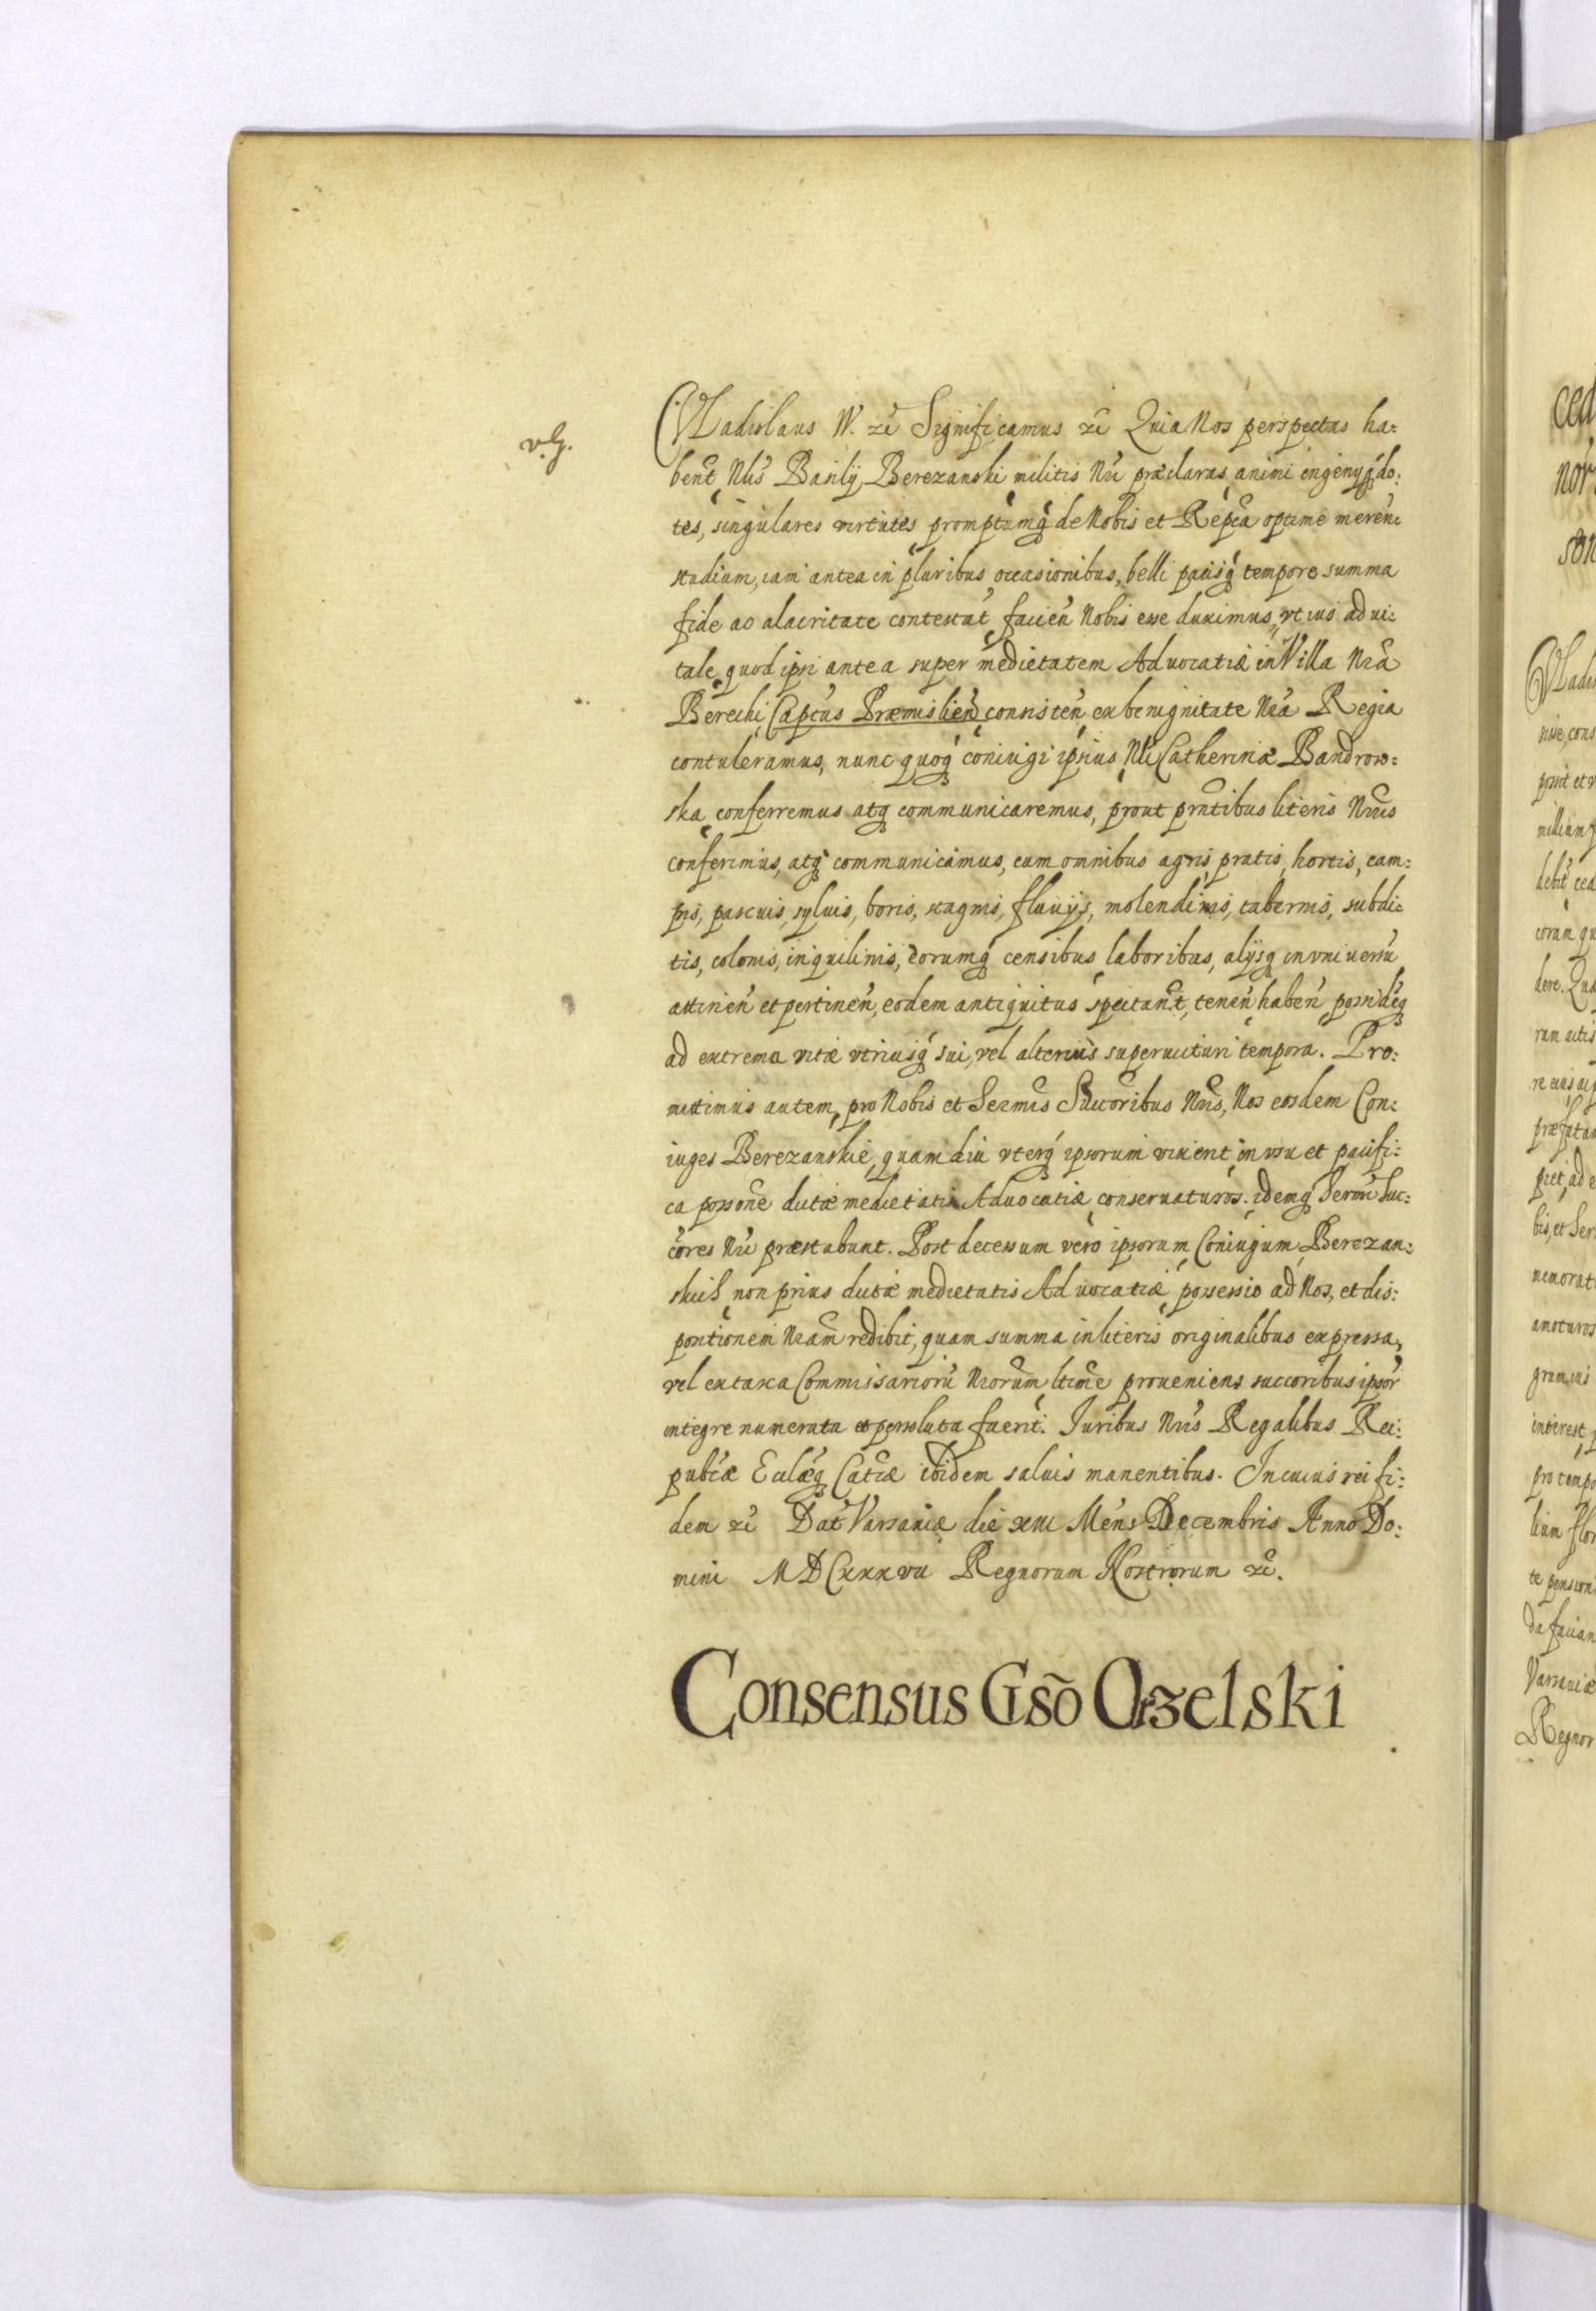 Vladislaus IV. zc̃ Significamus zc̃ Quia Nos perspectas ha:
v.G.
bent̃ Nlis̃ Basilÿ Berezanski militis Nrĩ præclaras animi ingenÿq́ do:
tes, singulares virtutes promptumq́ de Nobis et Repca optime meren:
studium, iam antea in pluribus occasionibus, belli pacisq́ tempore summa
fide ac alacritate contestat̃ facien̄ Nobis esse duximus, vt ius ad vi:
tale quod ipsi antea super medietatem Advocatiæ in Villa Nrã
Berechi Captus Præmislien̄ consisten̄ ex benignitate Nrã Regia
contuleramus, nunc quoq́ coniugi ipsius Nli Catherinæ Bandrow:
ska conferremus atq́ communicaremus, prout prntibus literis Nris
conferimus, atq́ communicamus, cum omnibus agris, pratis, hortis, cam:
pis, pascuis, syluis, boris, stagnis, fluvÿs, molendinis, tabernis, subdi:
tis, colonis, inquilinis, eorumq́ censibus laboribus, alÿsq́ in vniuersũ
attinen̄ et pertinen̄, eodem antiquitus spectant̃, tenen̄ haben̄ possideq́
ad extrema vitæ vtriusq́ sui, vel alterius superuicturi tempora. Pro:
mittimus autem, pro Nobis et Sermis Succoribus Nris, Nos eosdem Con:
iuges Berezanskie, quam diu vterq́ ipsorum vixerit, in vsu et pacifi:
ca possone dictæ medietatis Aduocatiæ conseruaturos. idemq́ Sermi Suc:
cores Nri præstabunt. Post decessum vero ipsorum Coniugum Berezan:
skich non prius dictæ medietatis Aduocatiæ possessio ad Nos, et dis:
positionem Nram redibit, quam summa in literis originalibus expressa,
vel ex taxa Commissariorũ Nrorum ltime proueniens succoribus ipsor̃
integre numerata et persoluta fuerit. Iuribus Nris Regalibus Rei:
pubcæ Eccłæq́ Catcæ ibidem saluis manentibus. In cuius rei fi:
dem zc̃ Dat̃ Varsaviæ die XIII Mens Decembris Anno Do:
mini MDCXXXVII Regnorum Nostrorum zc̃.
Consensus Gsõ Orzelski